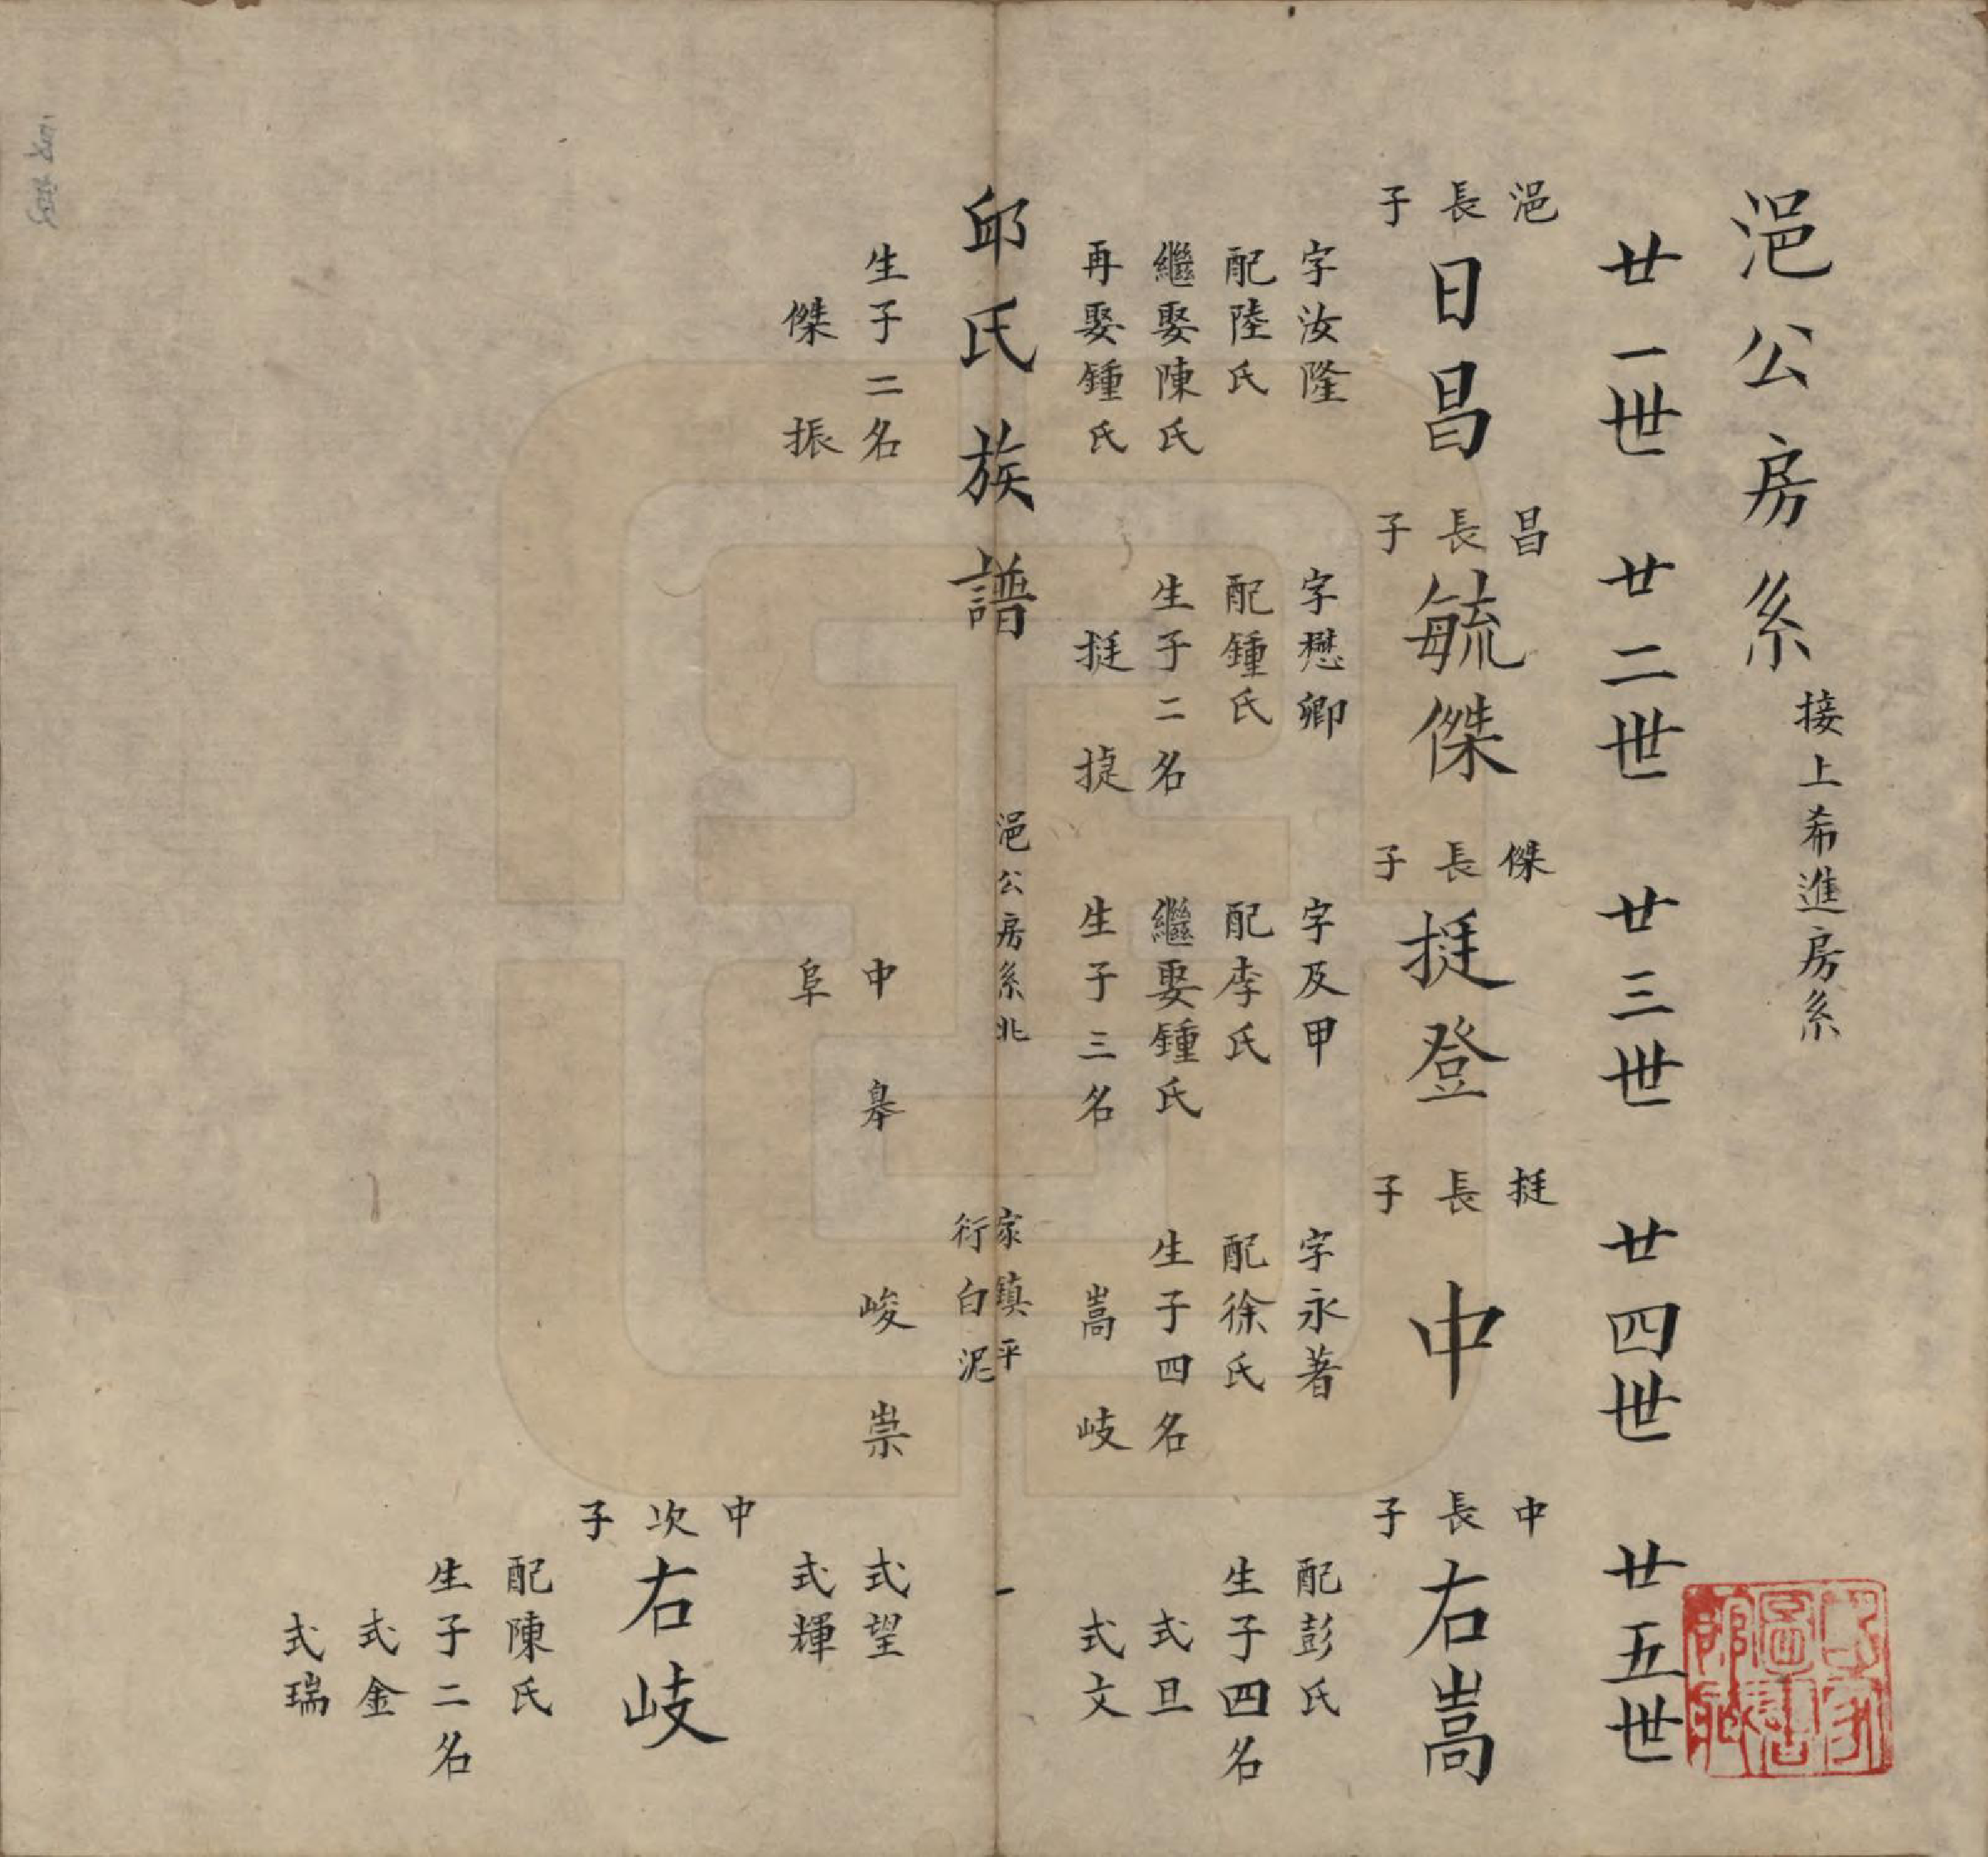 浥公房系 接上希進房系
廿一世 廿二世 廿三世 廿四世 廿五世
浥長子 日昌
字汝隆
配陸氏
繼娶陳氏
再娶鍾氏
生子二名
傑 振
昌長子 毓傑
字懋卿
配鍾氏
生子二名
挺 㨗
傑長子 挺登
字及甲
配李氏
繼娶鍾氏
生子三名
中 皋
阜
挺長子 中
字永著
配徐氏
生子四名
嵩 岐
峻 崇
中長子 右嵩
配彭氏
生子四名
式旦
式文
式望
式輝
中次子 右岐
配陳氏
生子二名
式金
式瑞
邱氏族譜 浥公房系兆 家鎮平 衍白泥 一